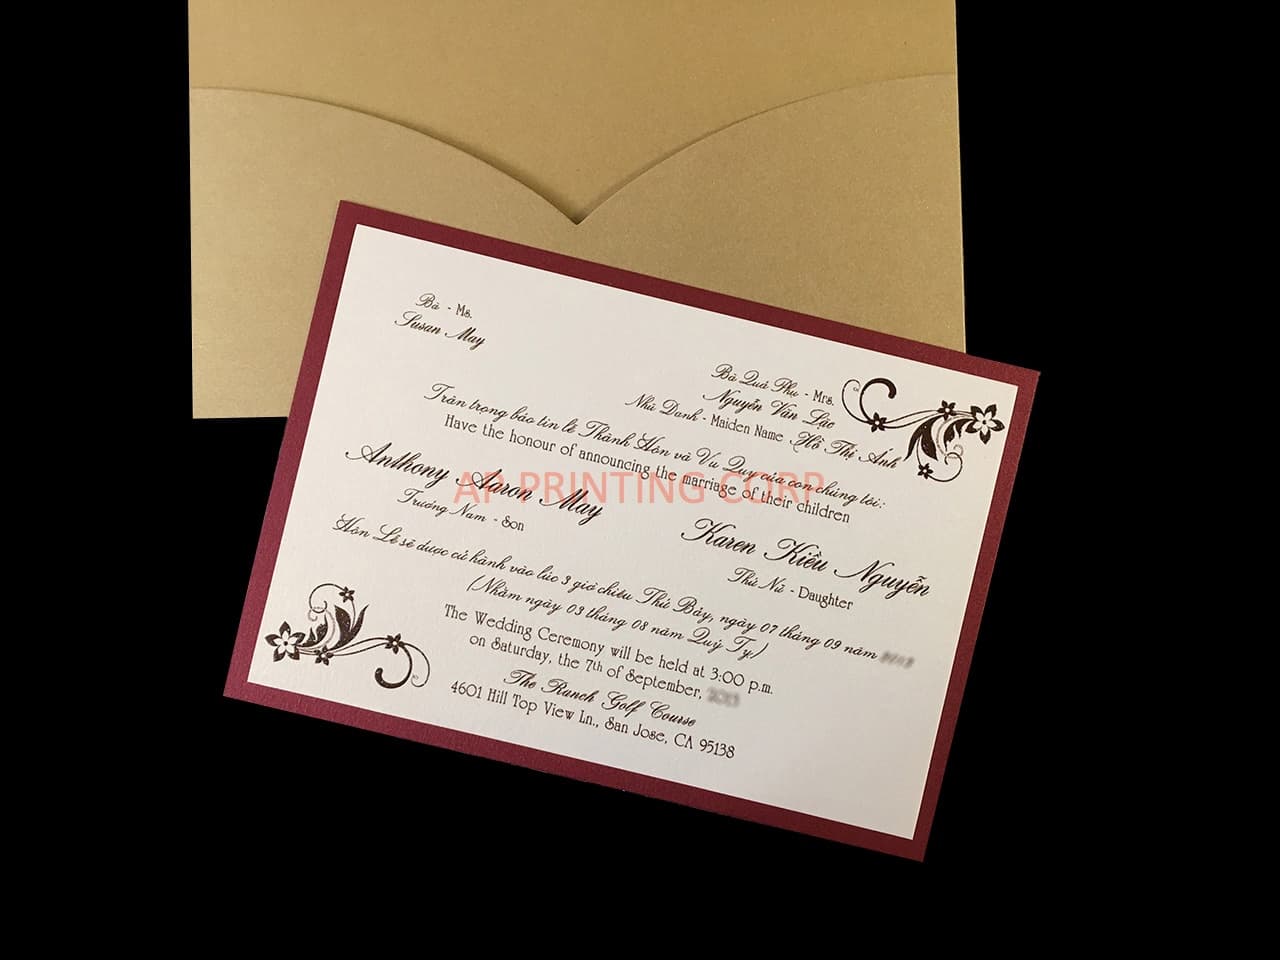 Bà - Ms.
Susan May
Bà Quả Phụ - Mrs.
Nguyễn Văn Lặc
Nhũ Danh - Maiden Name : Hồ Thị Ánh
Trân trọng báo tin lễ Thành Hôn và Vu Quy của con chúng tôi:
Have the honour of announcing the marriage of their children
AP PRINTING CORP
Anthony Aaron May
Trưởng Nam - Son
Karen Kiều Nguyễn
Thứ Nữ - Daughter
Hôn Lễ sẽ được cử hành vào lúc 3 giờ chiều Thứ Bảy, ngày 07 tháng 09 năm
(Nhằm ngày 03 tháng 08 năm Quý Tỵ)
The Wedding Ceremony will be held at 3:00 p.m.
on Saturday, the 7th of September,
The Ranch Golf Course
4601 Hill Top View Ln., San Jose, CA 95138